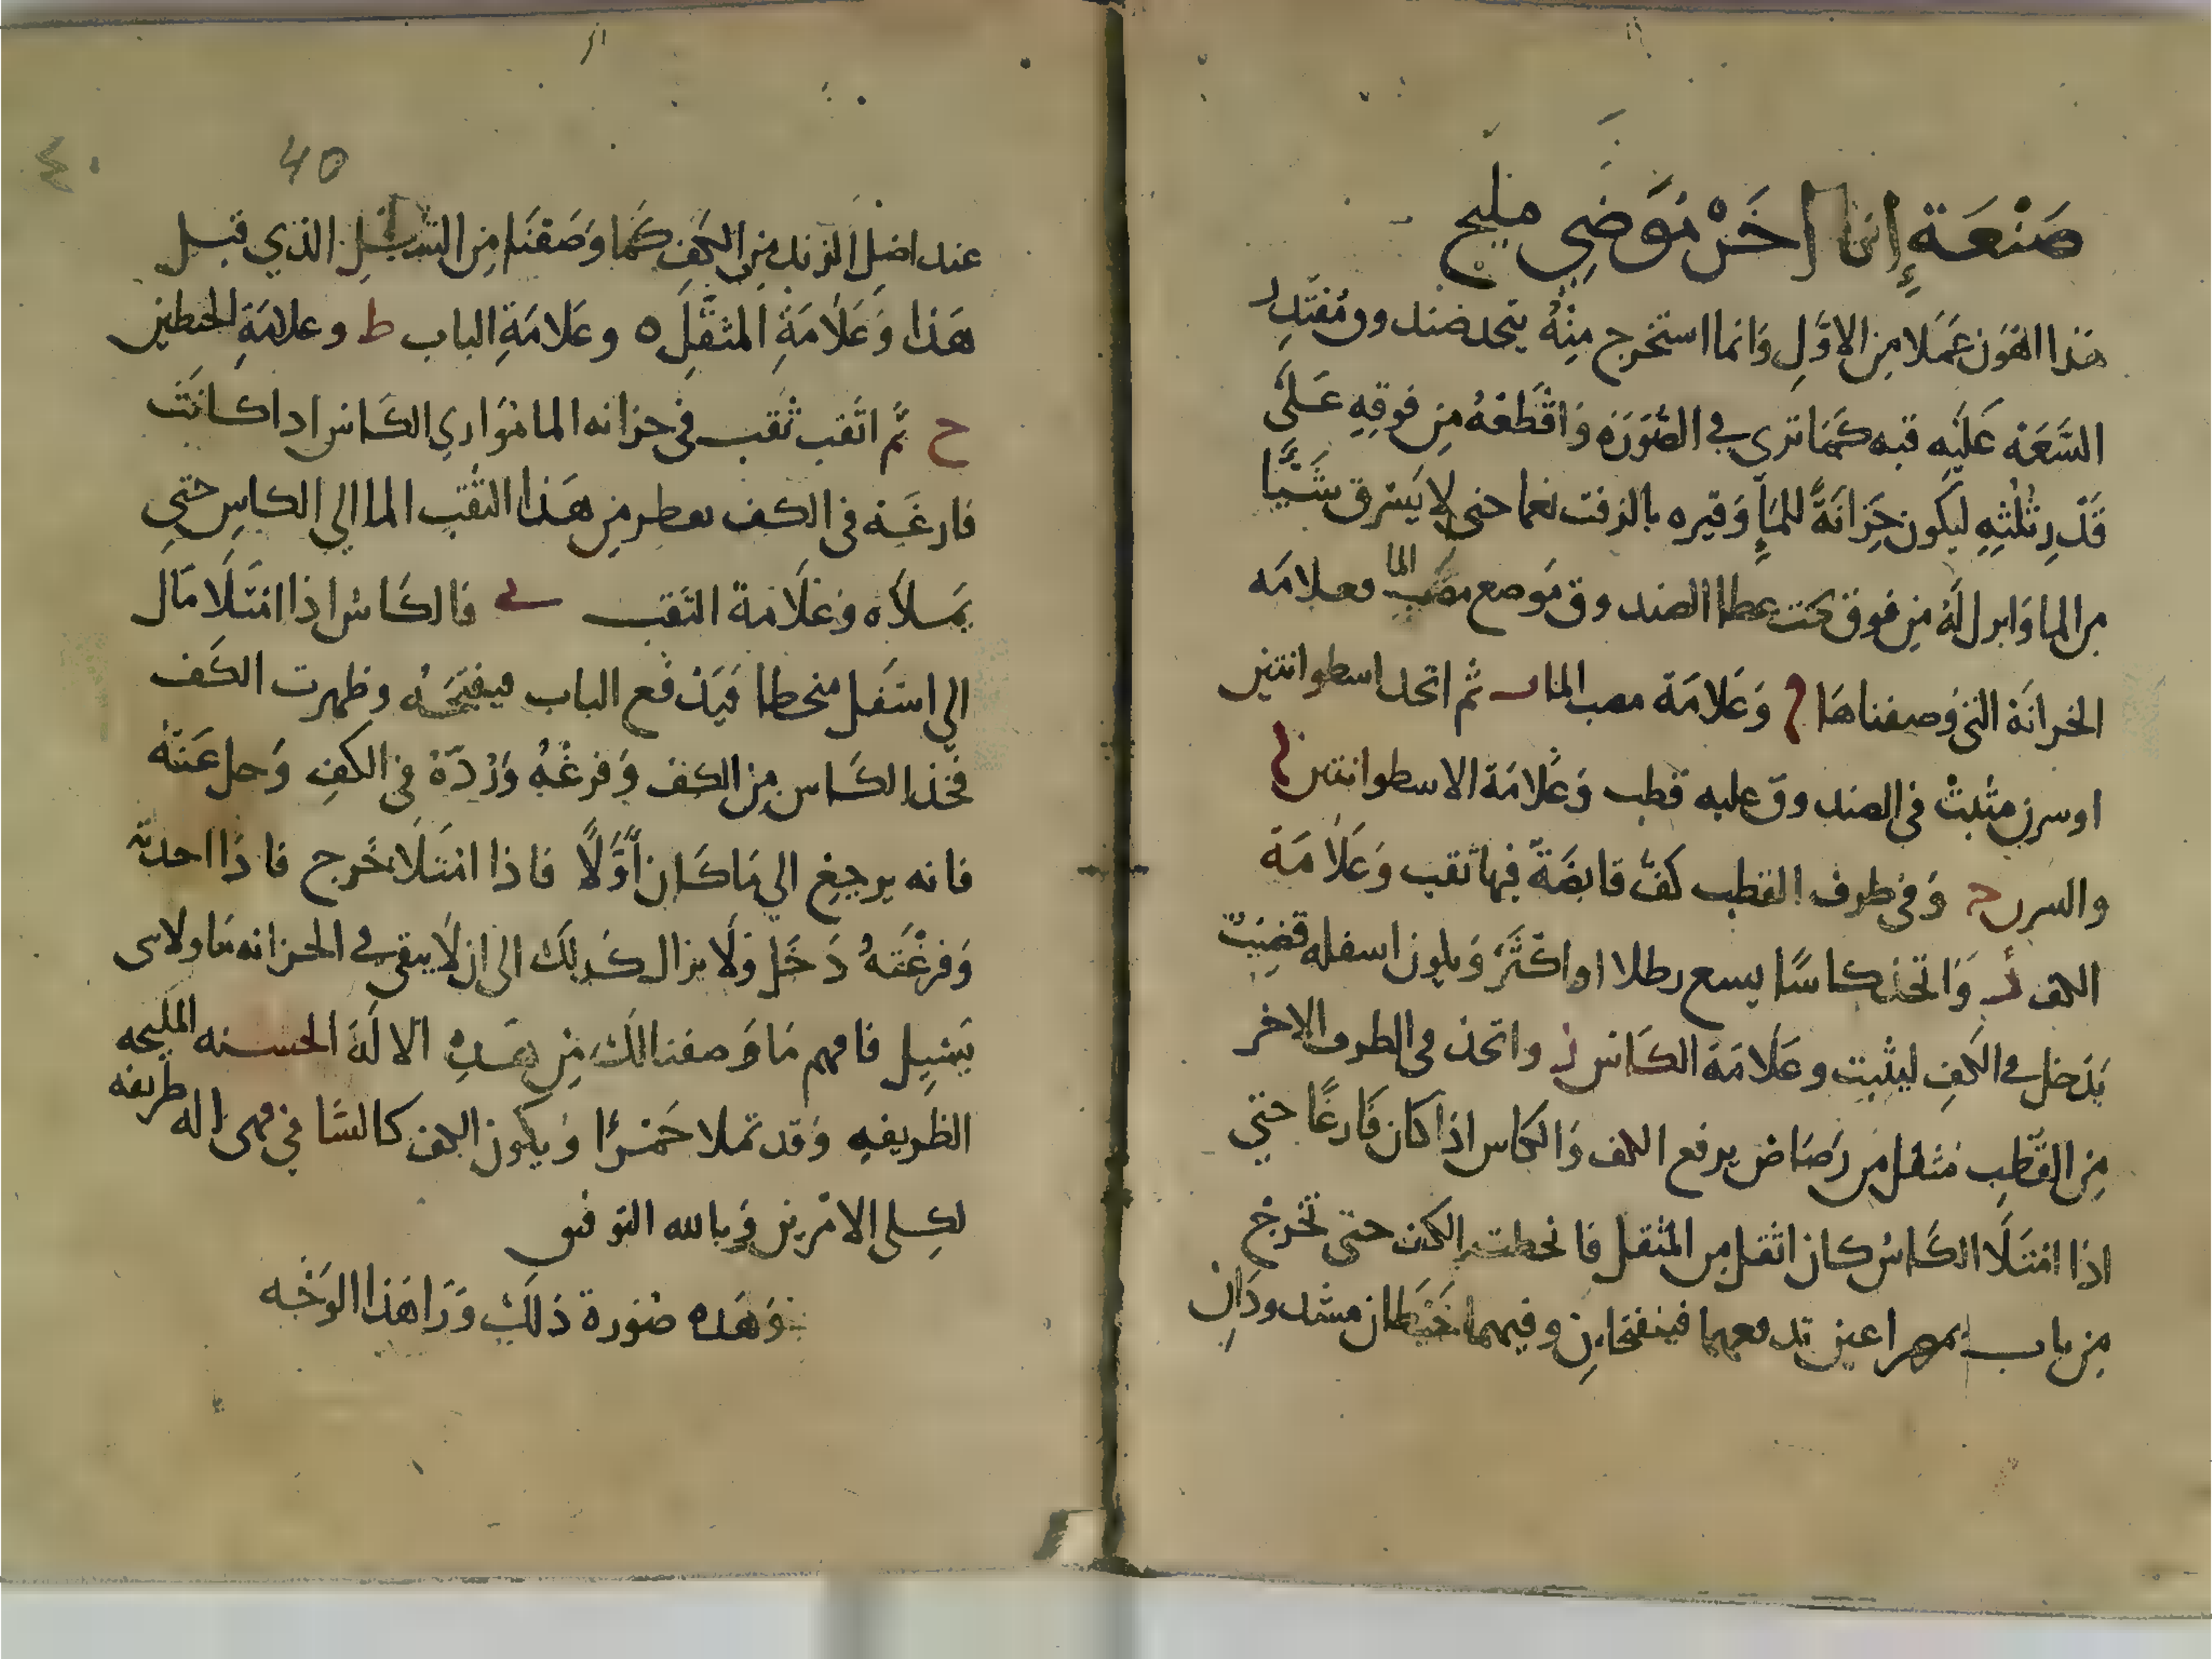 صَنْعَة إِنا اخَرْ نوَضِي مليح
هذا اهْوَن عَمَلا مِن الاوَّلِ وَانما استخرج مِنْهُ يتحد صندوو مُقتَدِر
السَّعَة عَلَيه قبه كَمَا ترى في الصُّورَة وَاقْطَعهُ مِن فوقِهِ عَلَى
قَدْرِ ثُلْثِهِ لِيَكون خِزانَةً للمَاءِ وَقيره بالزفت نعما حتى لا يَسْرق شَيًّا
من الما وَانزل لَهُ مِن فوق تحت عطا الصندوق مَوضع مصَب الما وعلامَه
الخزانَة التي وَصفناها وَعَلامَة مصب الما ثم اتحد اسطوانتين
اوسرن مثبت في الصندوق عليه قطب وَعَلامَة الاسطوانتين
والسرن ح وَفي طرف القطب كَفّ قابضَةٌ فيها ثقب وَعَلامَة
الكف د وَاتخذ كاسًا يسع رطلا او اكثَرَ وَيكون اسفله قضيبٌ
يَدخل في الكَفِ ليثبت وعَلَامَة الكَاس ز واتخذ في الطرف الاخر
مِن القُطبِ مثقل من رَصَاص يرفع الكف وَالكاس اذا كان فَارغًا حتي
اذا امتَلَا الكَاسُ كان اثقل من المثقل فانحطت الكف حتى تخرجْ
مِن باب بمصراعين تدفعهما فينفتحانِ وفيهما خَيْطان مشدودَانِ
40
٤٠
عند اصل الزند مِن الكَفِ كَما وَصَفنَا مِن التمثيل الذي قبل
هَذا وَعَلَامَة المثقَّلِ ه وعَلامَةِ الباب ط وعلامَةِ الخيطين
ح ثُمَّ اثقب ثُقب في خزانه الما مُوَاري الكَاس ادا كانَت
فارغَة في الكف يقطر مِن هَذا الثُقب الما الي الكاسِ حتي
يَملأه وَعَلَامة الثقب ي فالكَاسُ اذا امْتَلَا مَال
الي اسْفل منحطا فَيَدْفَع الباب فيفتحَه وظهرت الكَف
فخذ الكَاس مِن الكف وَفرغْهُ وَرُدّهْ في الكفِ وَحل عَنْهُ
فانه يرجِعْ الي مَا كَانَ أوَّلًا فاذا امْتَلَا خَرج فاذَا احدته
وَفرغْتَهُ دَخَل وَلَا يزال كَدلِكَ الى ان لَا يبقى في الخزانه مَاولاى
يَسِيل فافهم مَا وَصفنا لك مِن هَذِهِ الالَة الحسنه المليحه
الظريفهِ وَقد تملا خَمْرًا وَيكون الكف كالسَّا في فهى اله طريفه
لكِلي الامْرين وَبالله التوفيق
وَهَذه صُورة ذلكَ وَرَا هَذا الوَجْه